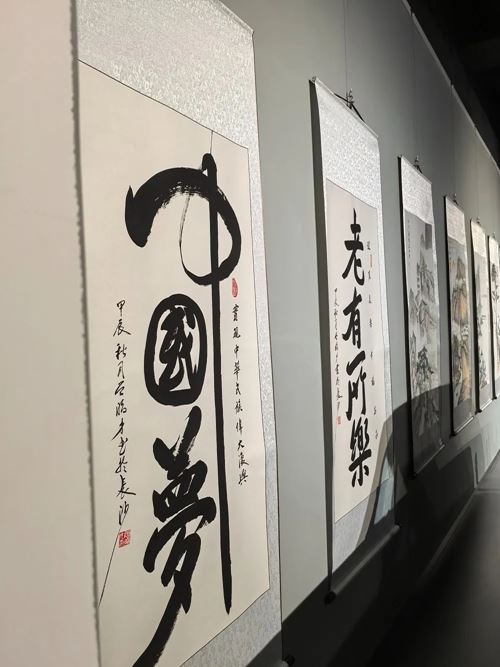 實現中華民族偉大復興
中國夢
甲辰秋月 書於長沙
老有所樂